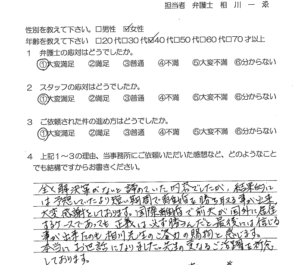 担当者 弁護士 相川一桒
性別を教えて下さい。 □男性 ☑女性
年齢を教えて下さい。 □20代□30代☑40代□50代□60代□70才以上
1 弁護士の応対はどうでしたか。
①大変満足 ②満足 ③普通 ④不満 ⑤大変不満 ⑥分からない
2 スタッフの応対はどうでしたか。
①大変満足 ②満足 ③普通 ④不満 ⑤大変不満 ⑥分からない
3 ご依頼された件の進め方はどうでしたか。
①大変満足 ②満足 ③普通 ④不満 ⑤大変不満 ⑥分からない
4 上記1～3の理由、当事務所にご依頼いただいた感想など、どのようなこと
でも結構ですからお書きください。
全く解決策がないと諦めていた内容でしたが、結果的に
は予想していたより短い期間で勝ち取る事が出来
大変感謝をしております。国際離婚で前夫が国外に居住
するケースであっても正義は必ず勝つんだと最後には信じる
事が出来たのも相川先生のご尽力の賜物と感じます。
本当にお世話になりました。先生の更なるご活躍を祈念
しております。